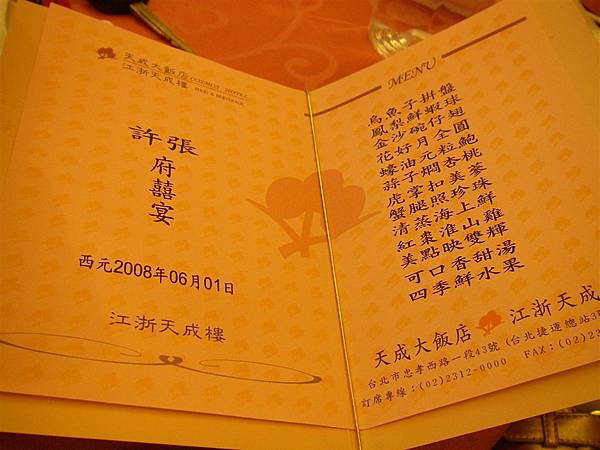 天成大飯店 COSMOS HOTEL
江浙天成樓 FOOD & BEVERAGE
許張
府
囍
宴
西元2008年06月01日
江浙天成樓
MENU
烏魚子拼盤
鳳梨鮮蝦球
金沙碗仔翅
花好月全圓
蠔油元粒鮑
蒜子燜杏桃
虎掌扣美蔘
蟹腿照珍珠
清蒸海上鮮
紅棗淮山雞
美點映雙輝
可口香甜湯
四季鮮水果
天成大飯店 江浙天成
台北市忠孝西路一段43號 (台北捷運總站3
訂席專線:(02)2312-0000 FAX:(02)23